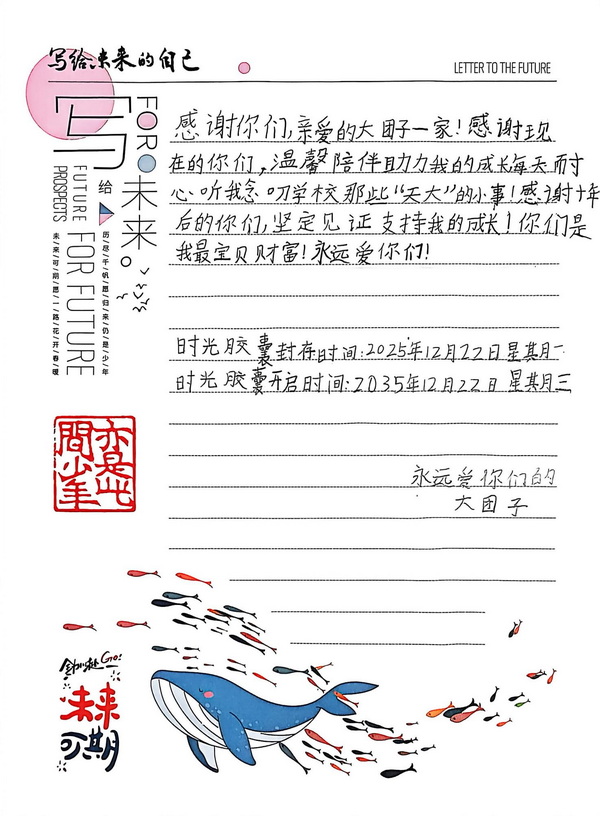 写给未来的自己
LETTER TO THE FUTURE
写
给
FOR
未来。
FUTURE
PROSPECTS
FOR FUTURE
历尽千帆愿归来仍是少年
未来可期愿一路花开春暖
感谢你们,亲爱的大团子一家!感谢现
在的你们,温馨陪伴助力我的成长每天耐
心听我念叨学校那些“天大”的小事!感谢十年
后的你们,坚定见证支持我的成长!你们是
我最宝贝财富!永远爱你们!
时光胶囊封存时间:2025年12月22日星期一
时光胶囊开启时间:2035年12月22日星期三
永远爱你们的
大团子
亦是此
间少年
Go!
未来
可期